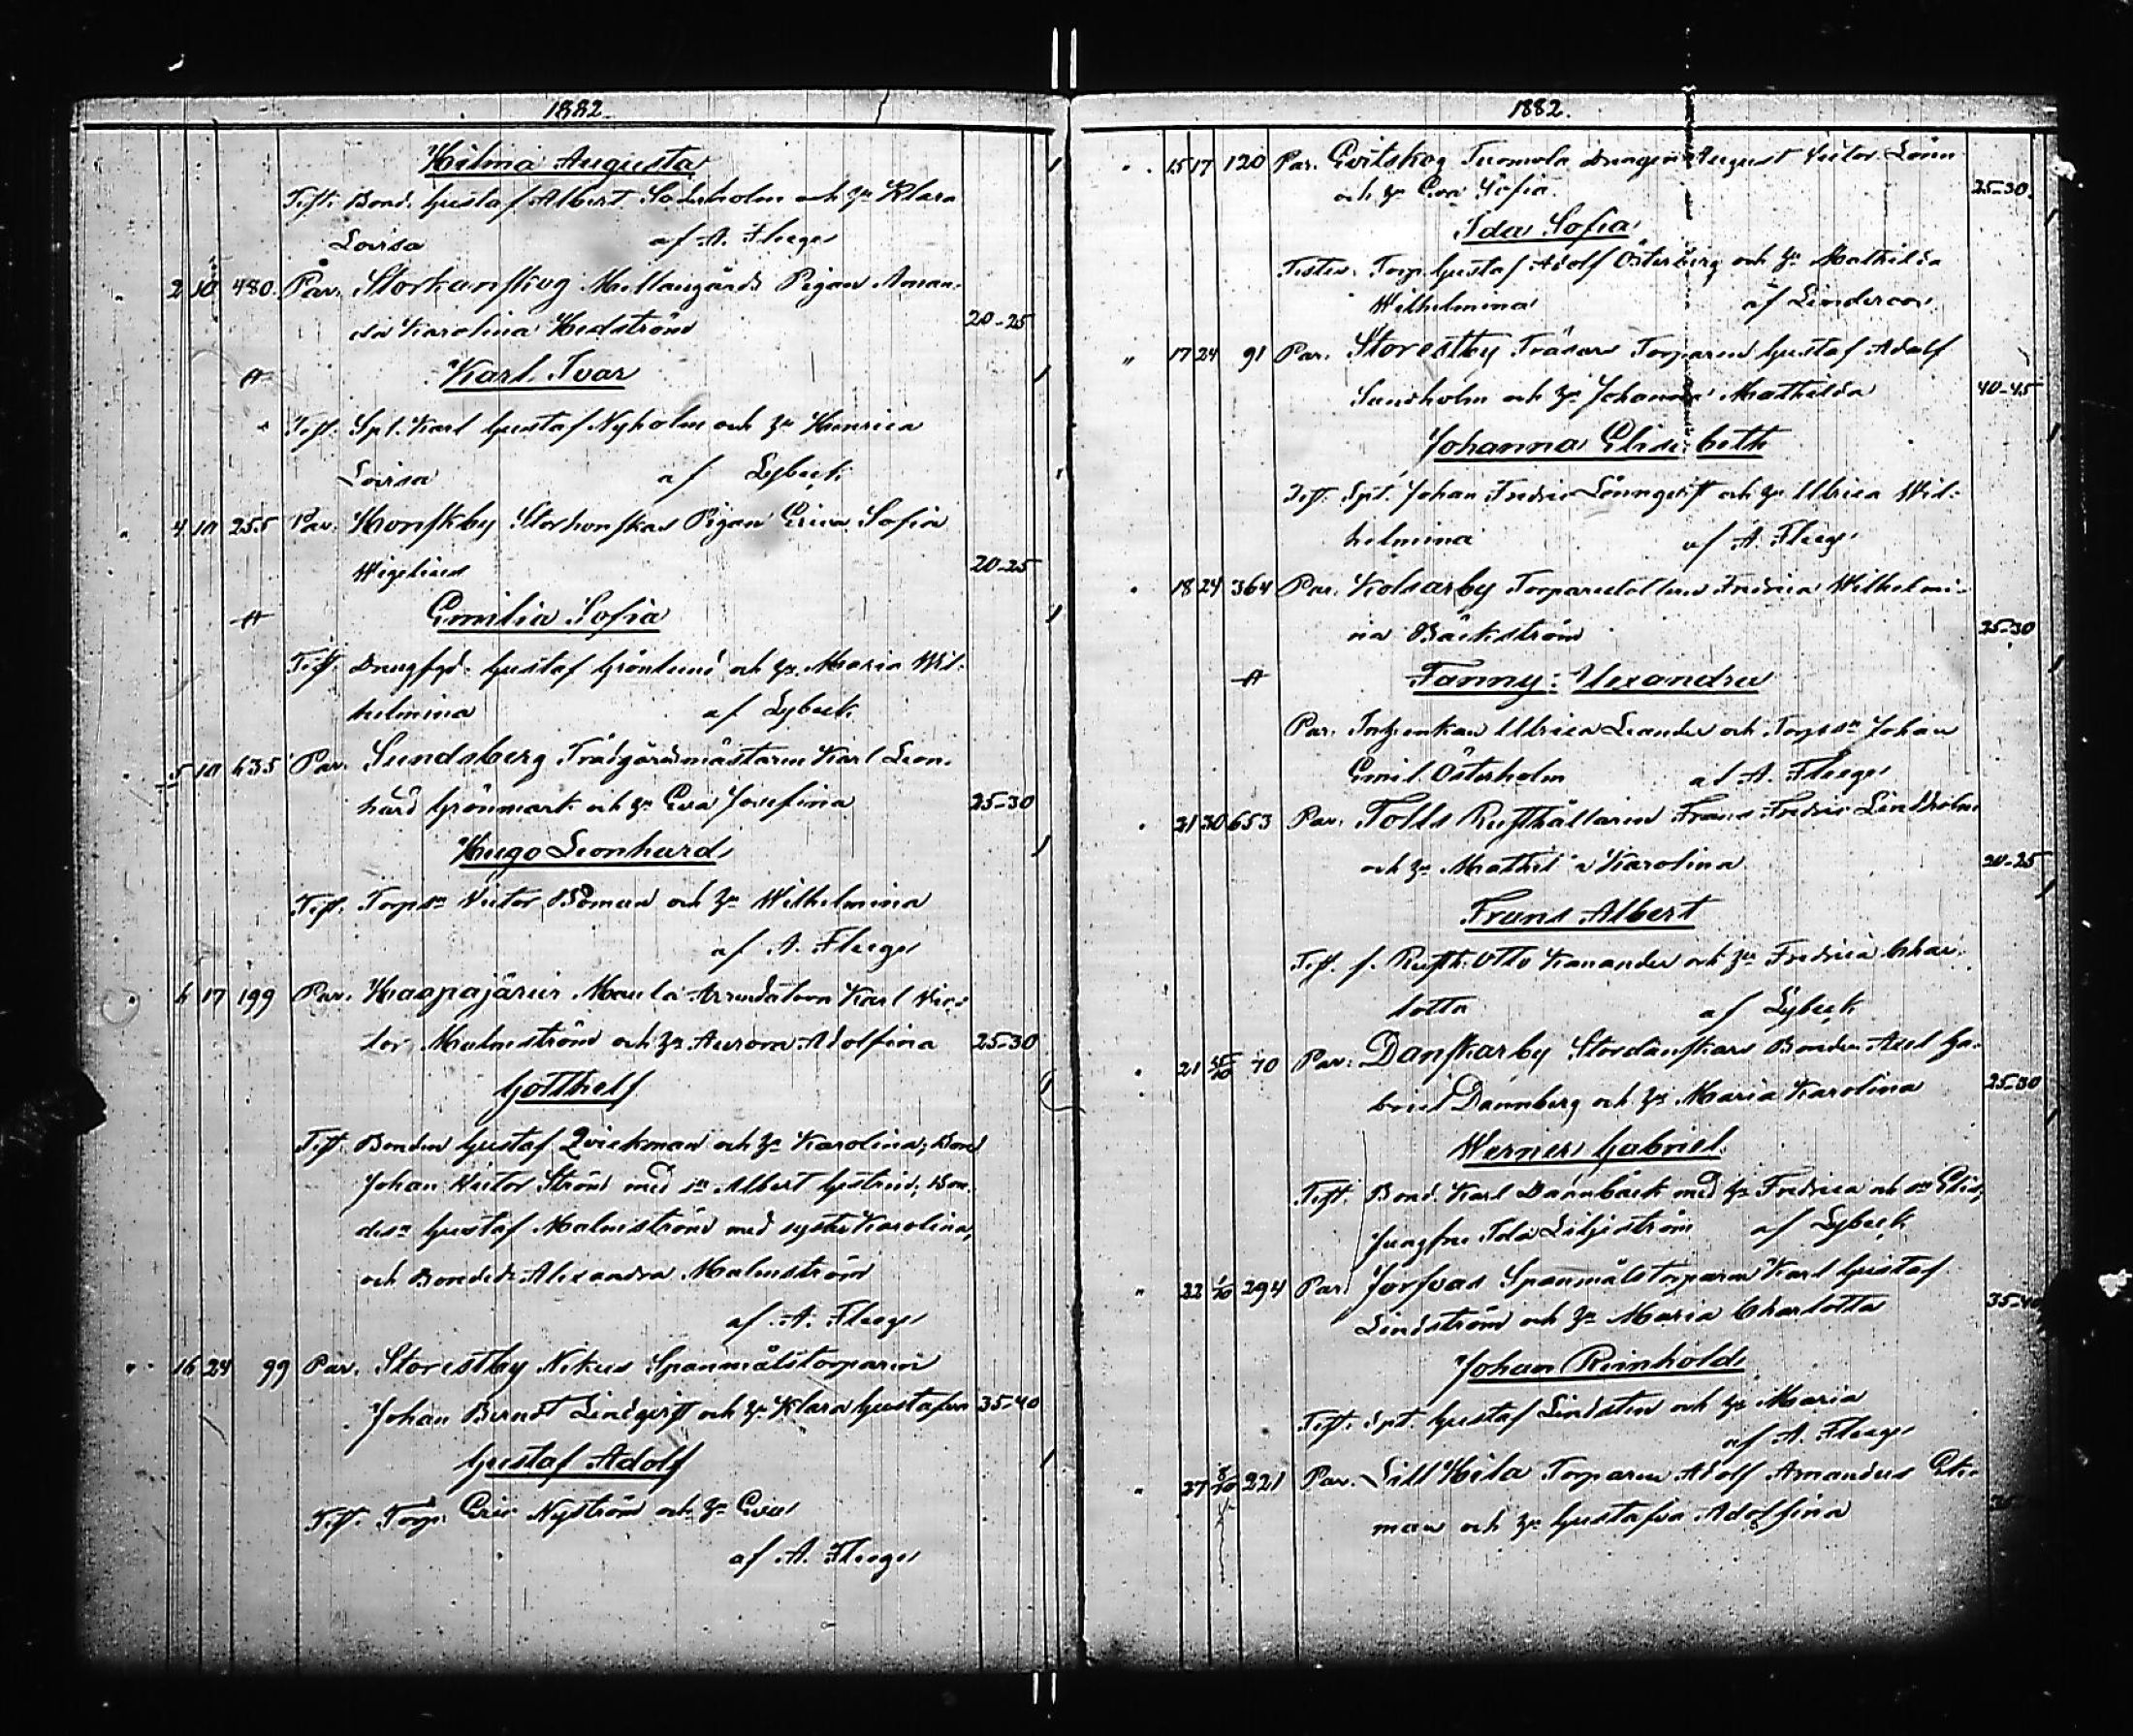 1882.
Hilma Augusta
Test. Bond. Gustaf Albert Söderholm och hu Klara
Lovisa af A. Fleege
2 10 480 Par. Storkanskog Mellangårds Pigan Aman-
da Karolina Hedström 20-25
Karl Ivar
Test. Spt. Karl Gustaf Nyholm och hu Henrica
Lovisa af Lybeck
4 10 255 Par. Honskby Storhonskas Pigan Erica Sofia
Wigelius 20-25
Emilia Sofia
Test. Gustaf Grönlund och hu Maria Wil-
helmina af Lybeck
5 10 635 Par. Sundsberg Trädgårdsmästaren Karl Leon-
hard Grönmark och hu Eva Josefina 25-30
Hugo Leonhard
Test. Torpsn Victor Böman och hu Wilhelmina
af A. Fleege
6 17 199 Par. Haapajärvi Arrendatorn Karl Vic-
tor Malmström och hu Aurora Adolfina 25-30
Gotthelf
Test. Bonden Gustaf Qvickman och hu Karolina; Bond
Johan Victor Ström med sn Albert Bon-
desn Gustaf Malmström med syster Karolina,
och Bondedr Alexandra Malmström
af A. Fleege
16 24 99 Par. Storestby Nikus Spanmålstorparen
Johan Berndt Lindqvist och hu Klara Gustafva 35-40
Gustaf Adolf
Test. Torp. Eric Nyström och hu Eva
af A. Fleege
1882.
15 17 120 Par. Evitskog Tuomola Drängen August Victor Lönn
och hu Eva Sofia. 25-30
Ida Sofia
Testes. Torp. Gustaf Adolf Österberg och hu Mathilda
Wilhelmina af Lindercrona
" 17 24 91 Par. Storestby Träsars Torparen Gustaf Adolf
Sundholm och hu Johanna Mathilda 40-45
Johanna Elisabeth
Test. Spt. Johan Fredric Lönnqvist och hu Ulrica Wil-
helmina af A. Fleege
18 24 364 Par. Kolsarby Torparedottren Fredrica Wilhelmi-
na Bäckström 25-30
Fanny Alexandra
Par. Inh.enkan Ulrica Leander och Torpsn Johan
Emil Österholm af A. Fleege
21 30 653 Par. Tolls Rusthållaren Frans Fredric Lindholm
och hu Mathilda Karolina 20-25
Frans Albert
Test. f. Rusth. Otto Kanander och hu Fredrica Char-
lotta af Lybeck
21 10 Par. Danskarby Stordanskars Bonden Axel Ga-
briel Dannberg och hu Maria Karolina 25-30
Werner Gabriel
Test. Bond. Karl Dannbäck med hu Fredrica och sn
Jungfru Ida Liljeström af Lybeck
" 22 1/10 294 Par. Jorfvas Spanmålstorparen Karl Gustaf
Lindström och hu Maria Charlotta 35-40
Johan Reinhold
Test. Spt. Gustaf Lindsten och hu Maria
af A. Fleege
" 27 8/10 221 Par. Lill Hila Torparen Adolf Amandus
man och hu Gustafva Adolfina